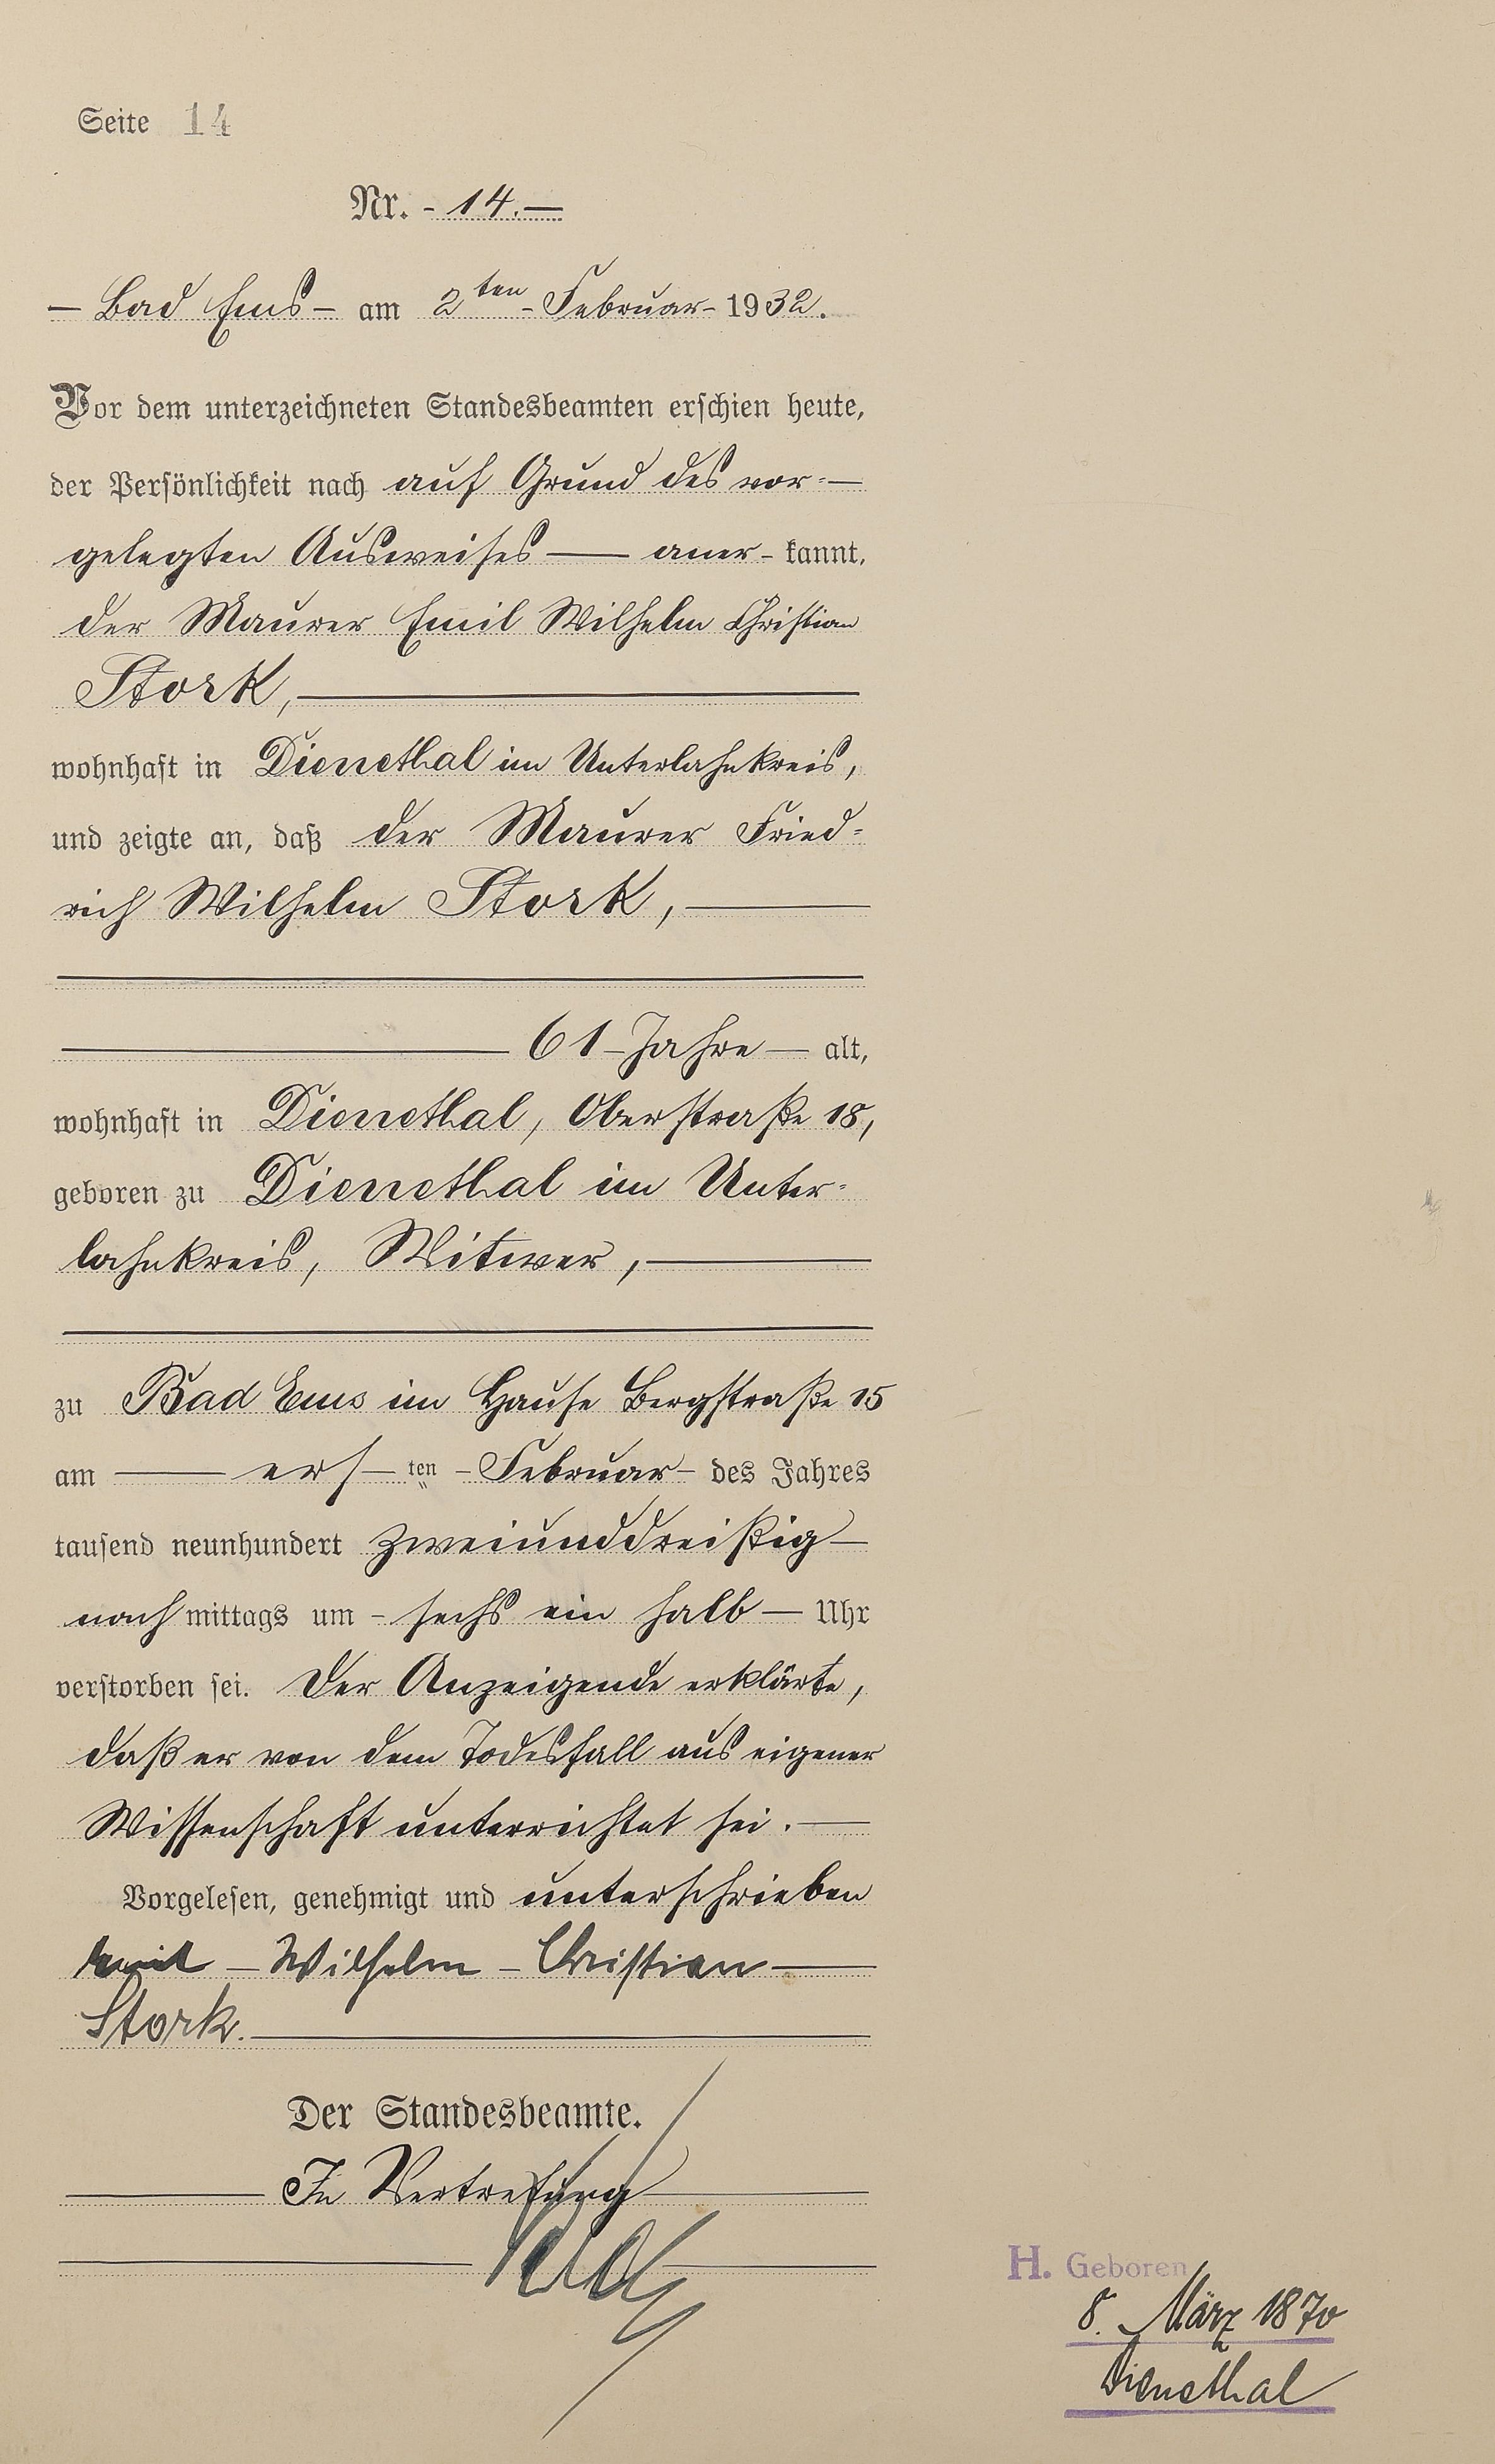 Seite 14
Nr. - 14. —
— Bad Ems — am 2ten - Februar - 1932.
Vor dem unterzeichneten Standesbeamten erschien heute,
der Persönlichkeit nach auf Grund des vor= —
gelegten Ausweises — aner - kannt,
der Maurer Emil Wilhelm Christian
Stork, —
wohnhaft in Dienethal im Unterlahnkreis,
und zeigte an, daß der Maurer Fried=
rich Wilhelm Stork, —
— 61 - Jahre — alt,
wohnhaft in Dienethal, Oberstraße 18,
geboren zu Dienethal im Unter=
lahnkreis, Witwer, —
zu Bad Ems im Hause Bergstraße 15
am — ers — ten - Februar - des Jahres
tausend neunhundert zweiunddreißig —
nach mittags um - sechs ein halb — Uhr
verstorben sei. Der Anzeigende erklärte,
daß er von dem Todesfall aus eigener
Wissenschaft unterrichtet sei. —
Vorgelesen, genehmigt und unterschrieben
Emil - Wilhelm - Christian —
Stork. —
Der Standesbeamte.
— In Vertretung —
H. Geboren
8. März 1870
Dienethal